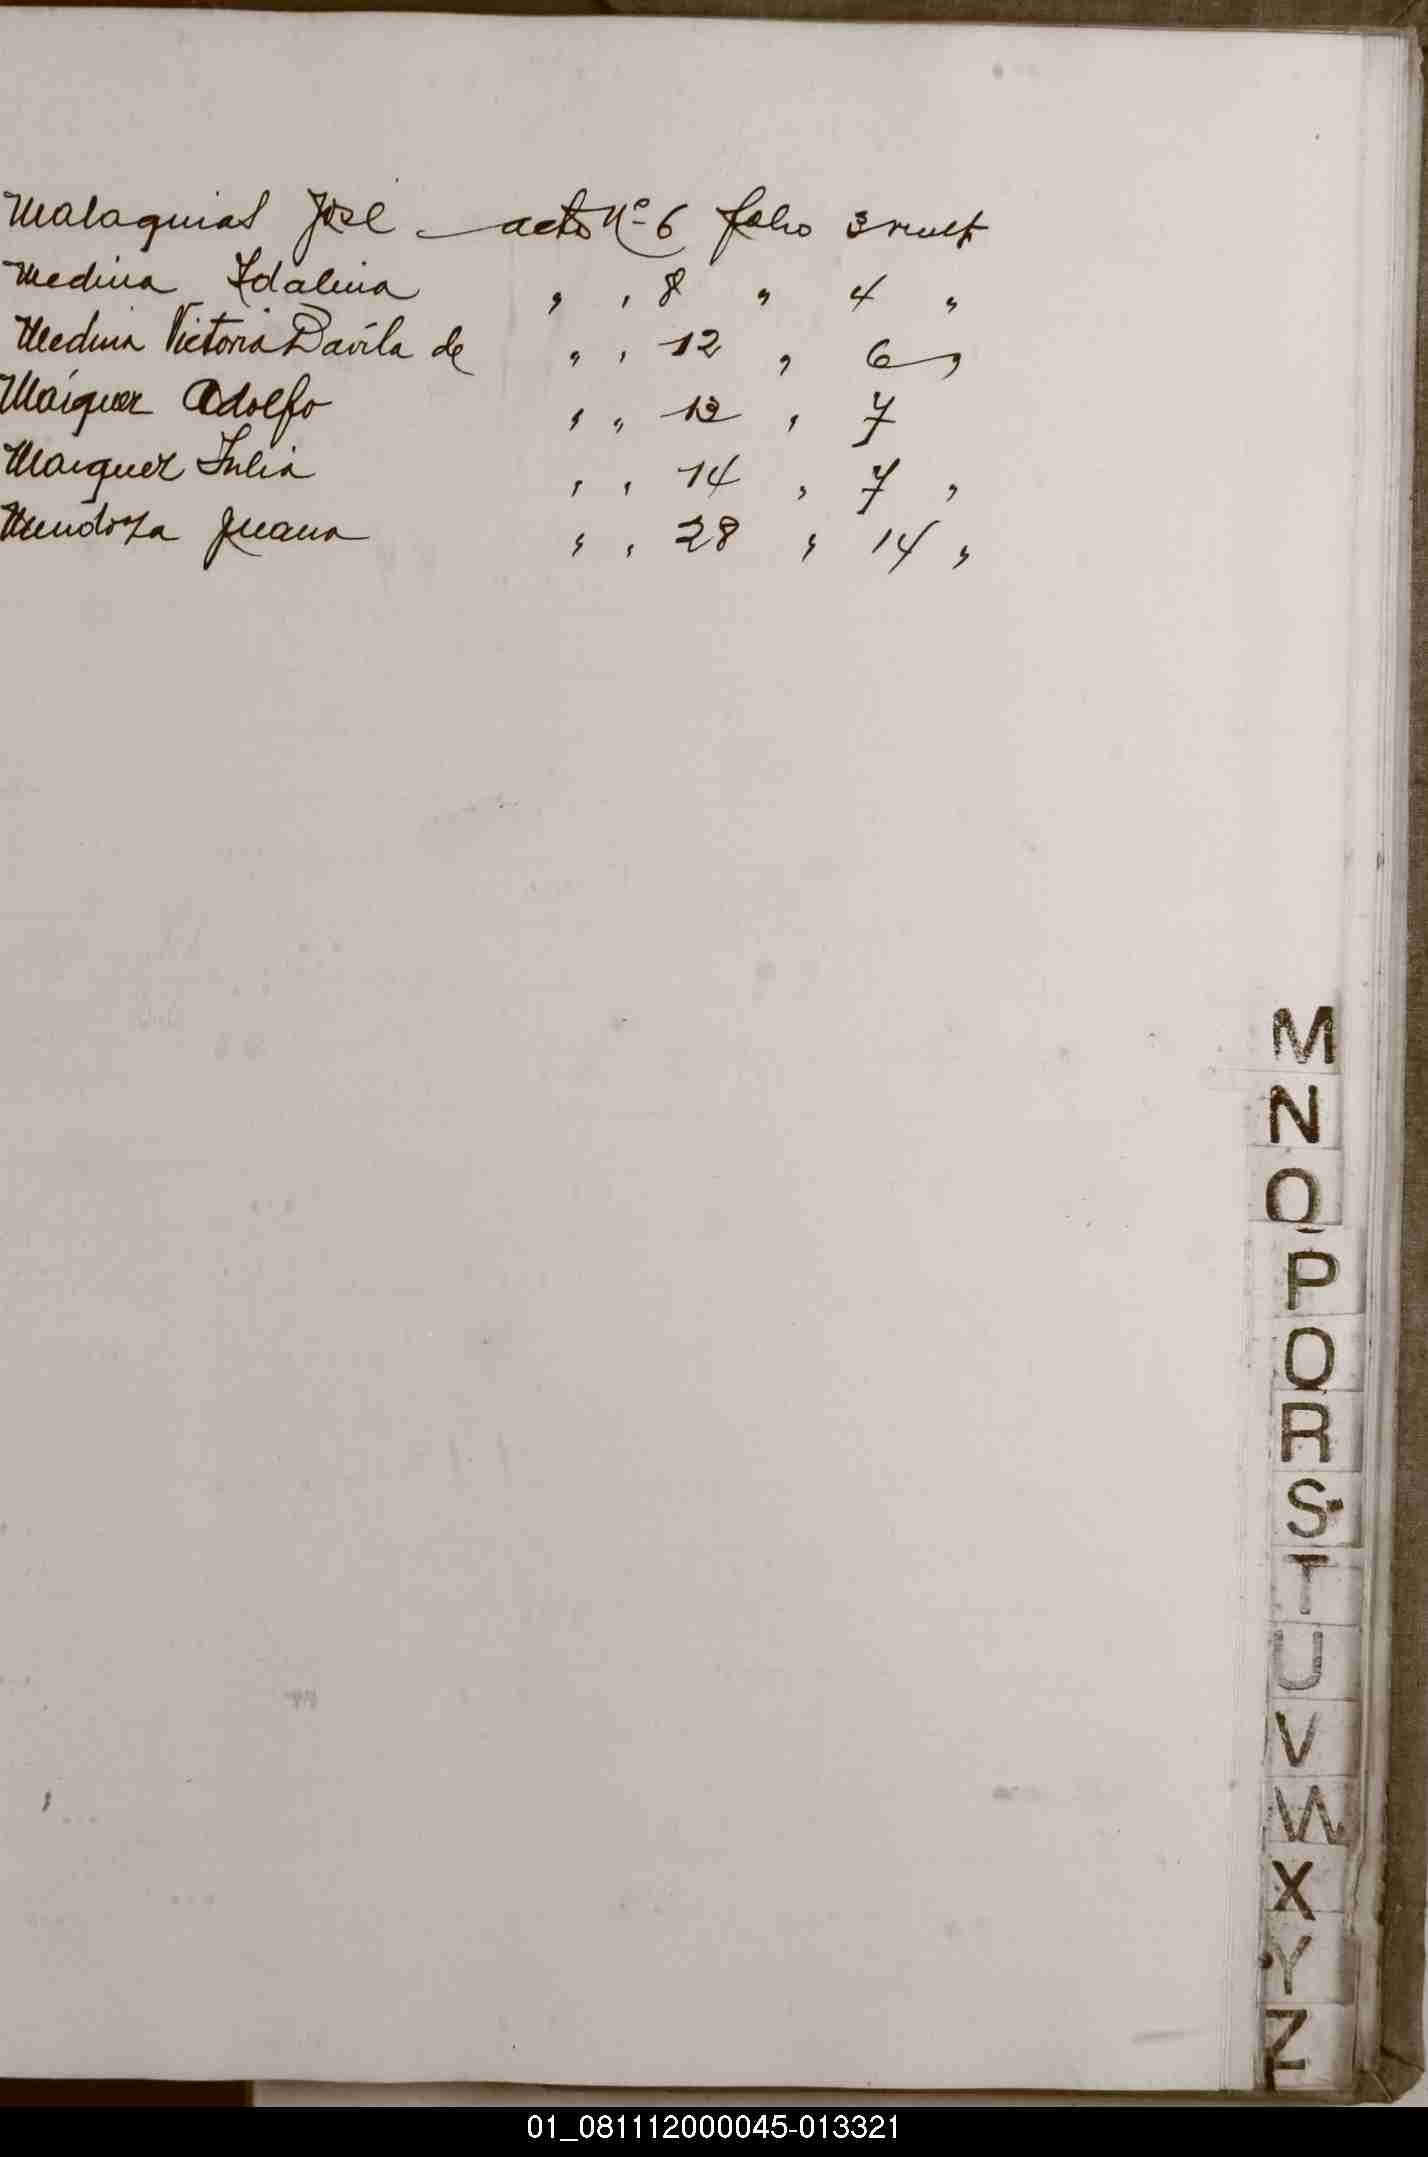 Malaquias José acto Nº 6 folio 3 vuelt
Medina Idalina " " 8 " 4 "
Medina Victoria Davila de " " 12 " 6 "
Maíquez Adolfo " " 13 " 7
Maiquez Julia " " 14 " 7 "
Mendoza Juana " " 28 " 14 "
M
N
O
P
Q
R
S
T
U
V
W
X
Y
Z
01_081112000045-013321